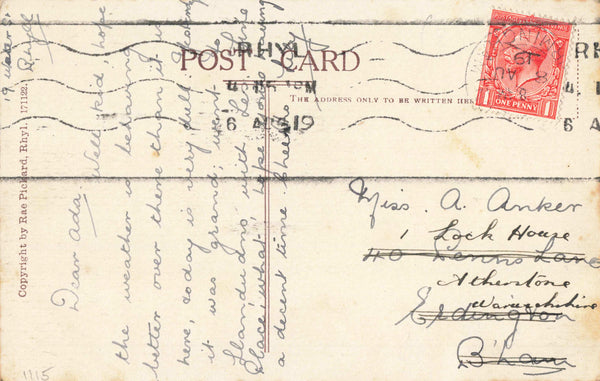 POST CARD
THE ADDRESS ONLY TO BE WRITTEN HERE
RHYL
4. PM
6 AUG 19
RH
4.
6
ONE PENNY
1 1
Copyright by Rae Pickard, Rhyl. 171122.
19 Water St
Rhyll
Dear Ada, Well kid, hope
the weather is behaving
better over there than it is
here, today is very dull. Monday
it was grand; went to
Llandudno with Leslie
Place; what! hope you're having
a decent time. Cheerio
Miss. A. Anker
1 Lock House
40 Lane
Atherstone
Warwickshire
Erdington
B'ham
1115